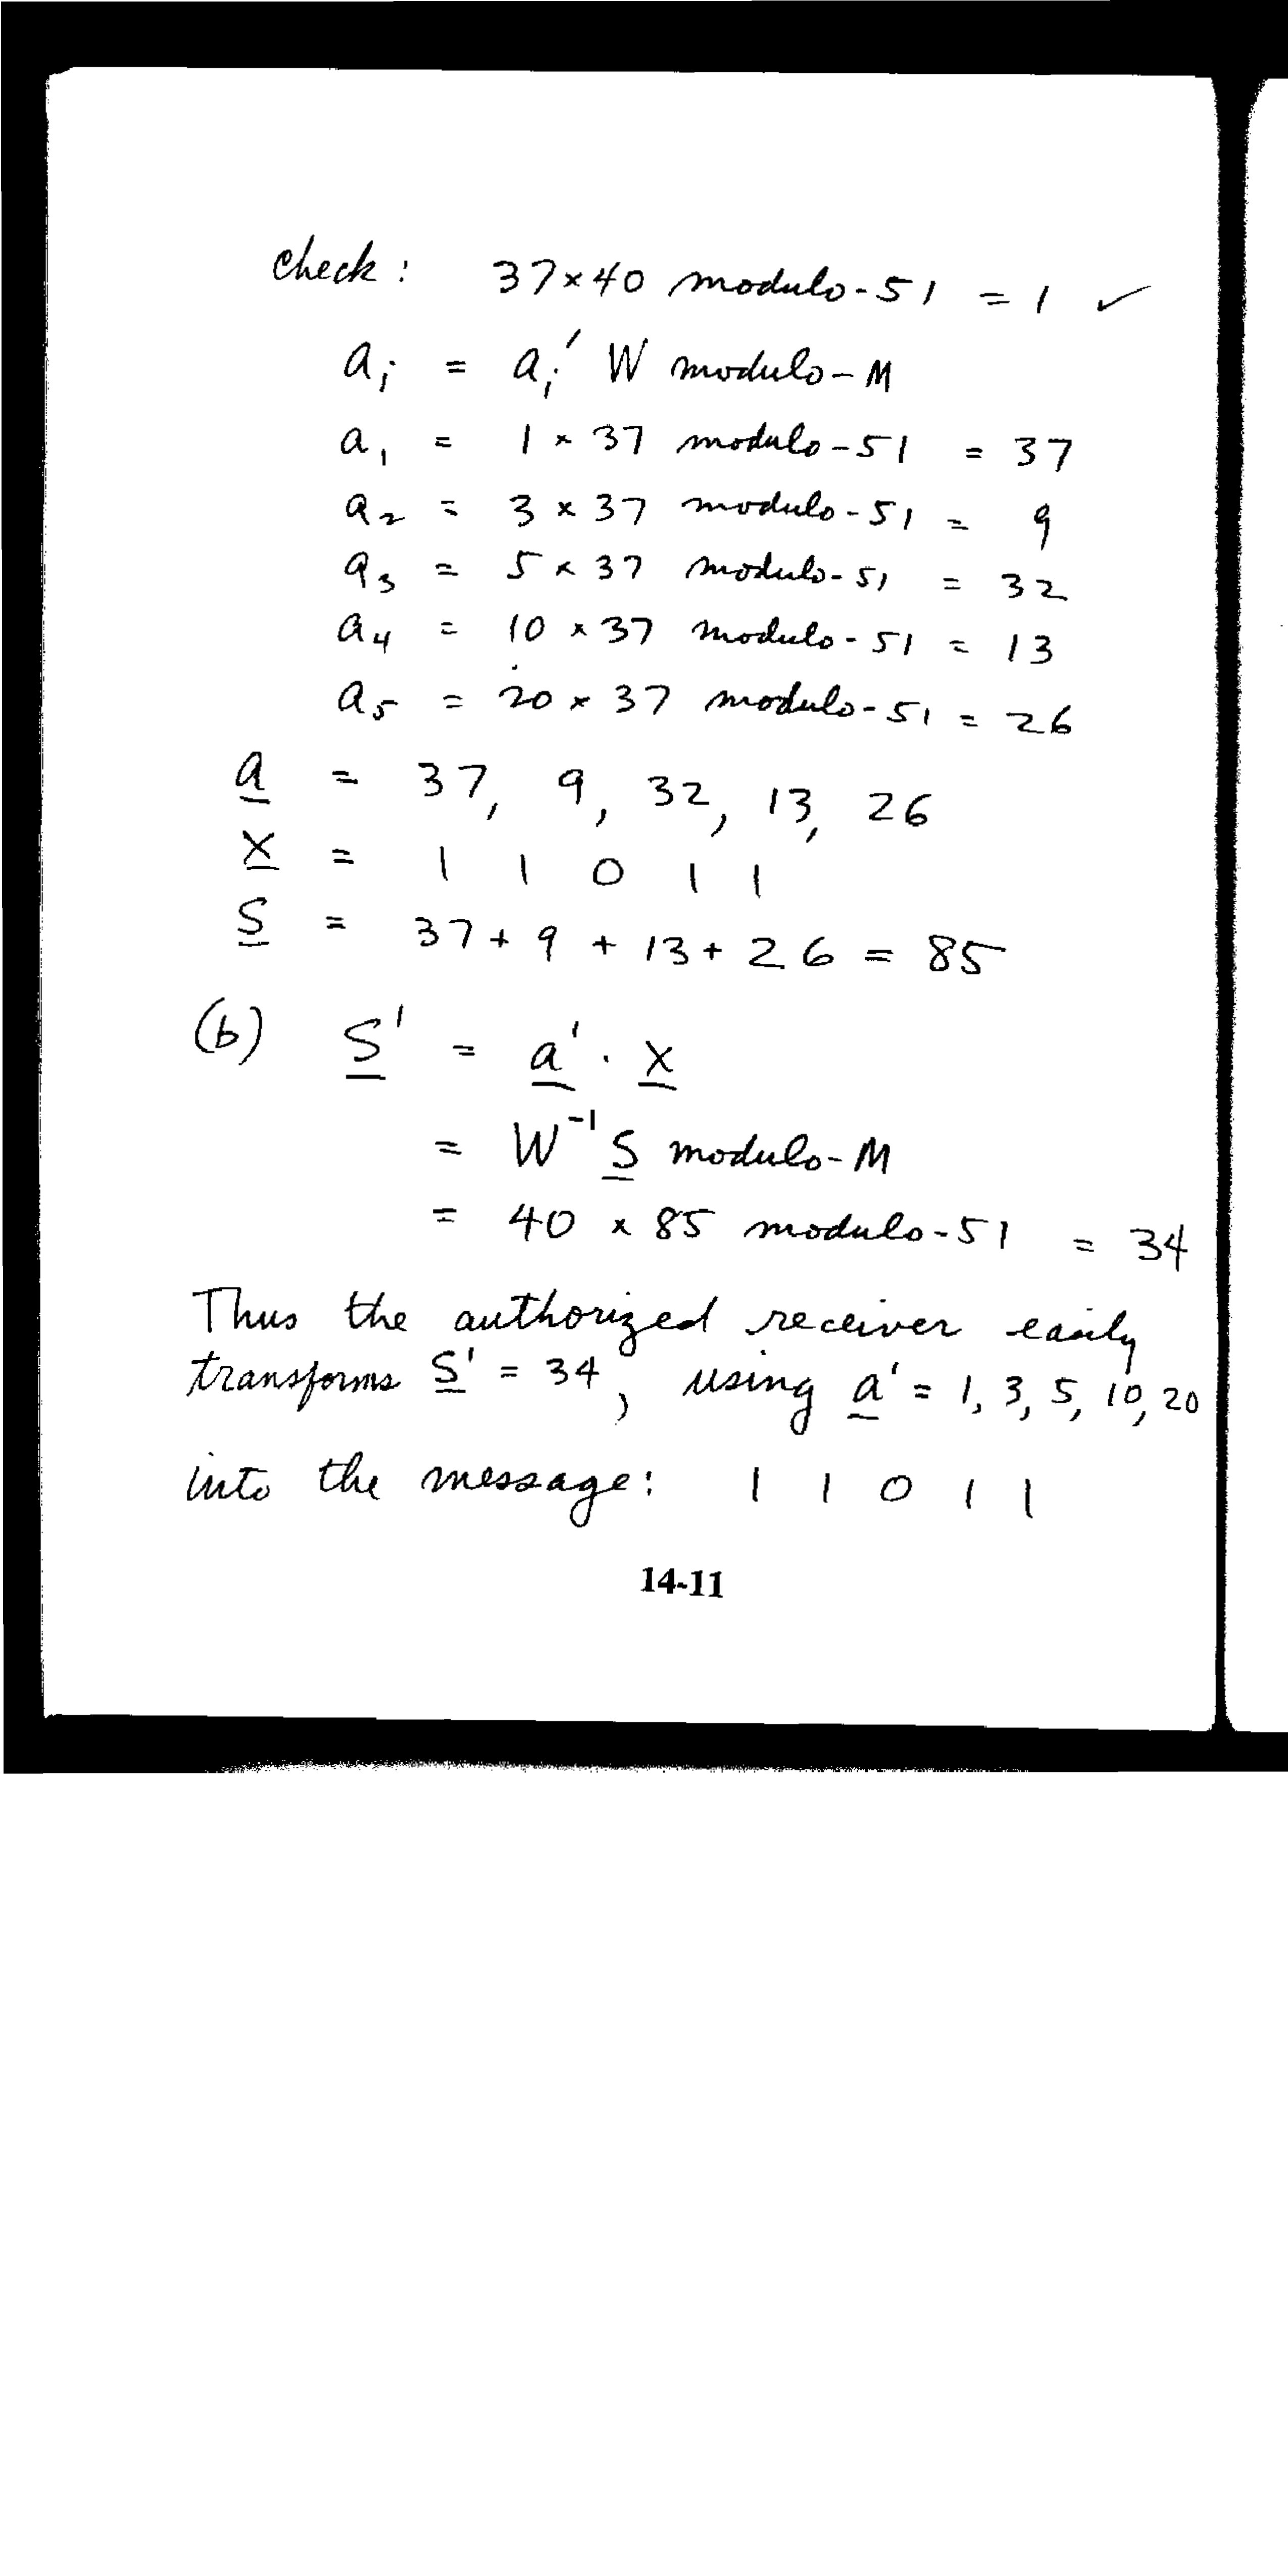 check: 37×40 modulo-51 = 1 ✓
aᵢ = aᵢ′ W modulo-M
a₁ = 1 × 37 modulo-51 = 37
a₂ = 3 × 37 modulo-51 = 9
a₃ = 5 × 37 modulo-51 = 32
a₄ = 10 × 37 modulo-51 = 13
a₅ = 20 × 37 modulo-51 = 26
a = 37, 9, 32, 13, 26
X = 1 1 0 1 1
S = 37 + 9 + 13 + 26 = 85
(b) S′ = a′ · X
= W⁻¹ S modulo-M
= 40 × 85 modulo-51 = 34
Thus the authorized receiver easily
transforms S′ = 34, using a′ = 1, 3, 5, 10, 20
into the message: 1 1 0 1 1
14-11